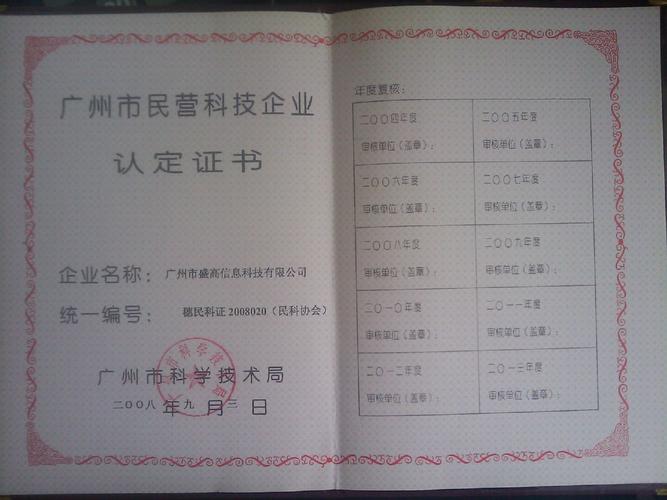 广州市民营科技企业
认定证书
企业名称：广州市盛高信息科技有限公司
统一编号：穗民科证2008020（民科协会）
广州市科学技术局
二〇〇八年九月三日
年度复核：
二〇〇四年度
审核单位（盖章）：
二〇〇五年度
审核单位（盖章）：
二〇〇六年度
审核单位（盖章）：
二〇〇七年度
审核单位（盖章）：
二〇〇八年度
审核单位（盖章）：
二〇〇九年度
审核单位（盖章）：
二〇一〇年度
审核单位（盖章）：
二〇一一年度
审核单位（盖章）：
二〇一二年度
审核单位（盖章）：
二〇一三年度
审核单位（盖章）：